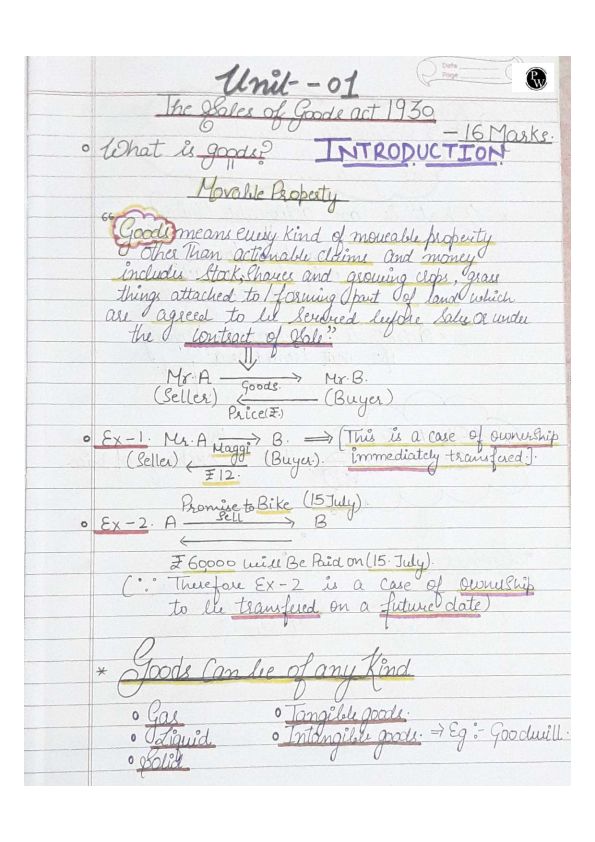 Date
Page
PW
Unit - 01
The Sales of Goods act 1930
- 16 Marks.
• What is goods? INTRODUCTION
Movable Property
"Goods means every kind of moveable property
other Than actionable claims and money
includes Stock, Shares and growing crops, grass
things attached to / forming part of land which
are agreed to be servered before sale or under
the contract of Sale."
Mr. A → Mr. B.
Goods.
(Seller) ← (Buyer)
Price(₹)
• Ex-1. Mr. A → B. ⇒ [This is a case of ownership
Maggi
(Seller) ← (Buyer). immediately transfered].
₹12.
Promise to Bike (15 July)
• Ex-2. A → B
Sell
←
₹ 60,000 will Be Paid on (15 July).
(∵ Therefore Ex-2 is a case of ownership
to be transfered on a future date)
* Goods Can be of any Kind
• Gas • Tangible goods.
• Liquid • Intangible goods. ⇒ Eg :- Goodwill.
• Solid